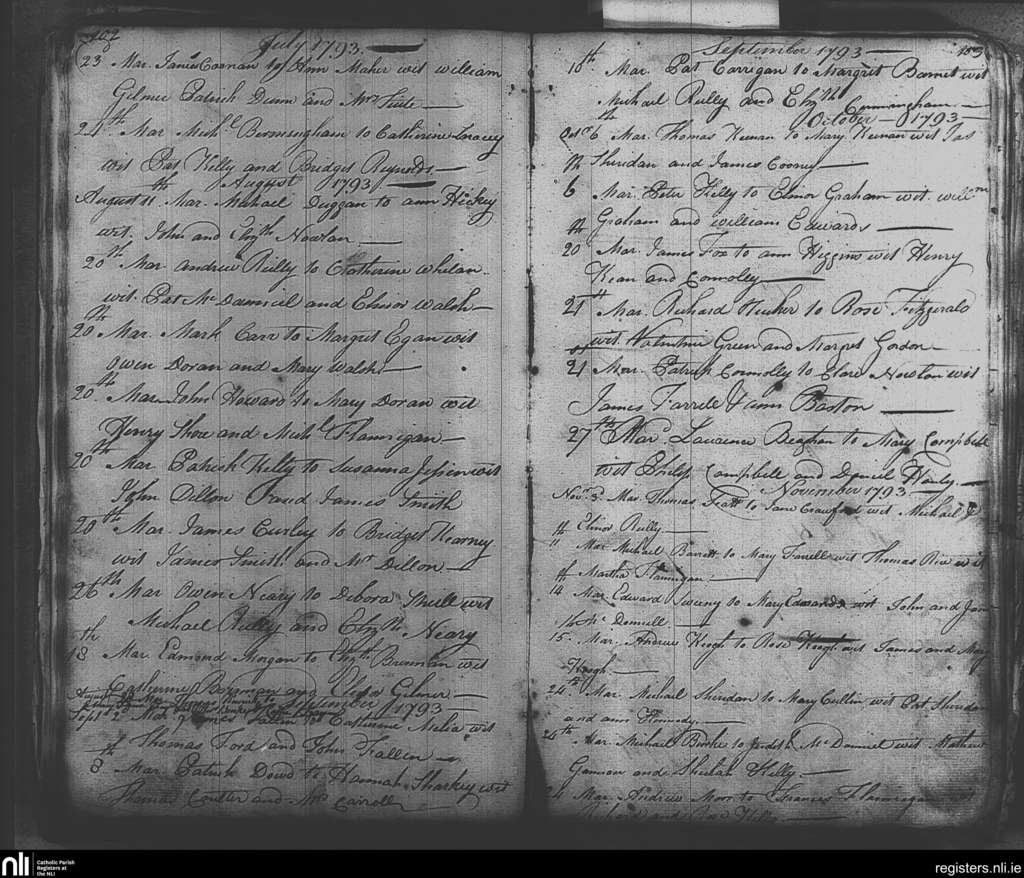 102
July 1793
23 Mar. James Coonan to Ann Maher wit William
Gilmer Patrick Dunn and Mrs
24th Mar Michl Bermingham to Catherine Tracey
wit Pat Kelly and Bridget Reynolds
August 1793
August 11th Mar. Michael Duggan to ann Hickey
wit. John and Elizth Nowlan
20th Mar Andrew Reilly to Catherine Whelan
wit. Pat Mc Danniel and Elinor Walsh
20th Mar. Mark Carr to Margret Egan wit
Owen Doran and Mary Walsh
20th Mar John Howard to Mary Doran wit
Henry Shoe and Michl Flannigan
20th Mar Patrick Kelly to Susanna wit
John Dillon and James Smith
20th Mar. James Curley to Bridget Kearney
wit James Smith and Mr Dillon
26th Mar Owen Neary to Debora wit
Michael Reilly and Elizth Neary
18th Mar Edmond Morgan to Elizth Brennan wit
Catherine Brennan and Elinor Gilmer
September 1793
Sept 2d Mar James Fallin to Catherine Melia wit
Thomas Ford and John Fallen
8th Mar Patrick Dowd to Hannah Sharkey wit
Thomas Coulter and Mrs Cairoll
103
September 1793
10th Mar. Pat Corrigan to Margret Barnet wit
Michael Reilly and Elizth Cunningham
October 1793
Octor 6th Mar Thomas Keenan to Mary Keenan wit Jas
Sheridan and James Cooney
6th Mar. Peter Kelly to Elinor Graham wit. Willm
Graham and William Edwards
20th Mar James Fox to ann Higgins wit Henry
Kean and Connolly
21st Mar. Richard to Rose Fitzgerald
wit. Valentine Green and Margret Gordon
21st Mar. Patrick Connolly to Clare Newton wit
James Farrell & ann Baston
27th Mar. Laurence Beaghan to Mary Campbell
wit Philip Campbell and Daniel Hanly
November 1793
Novr 3 Mar Thomas to Jane Crawford wit Michael &
Elinor Reilly
11th Mar Michael Barrett to Mary Farrell wit Thomas Rice wit
Martha Flannigan
14th Mar Edward Sweeny to Mary Edwards wit John and Jan
Mc Danniell
15th Mar. Andrew Keogh to Rose Keogh wit James and Mary
Keogh
24th Mar Michael Sheridan to Mary Cullin wit Pat Sheridan
and ann Kennedy
24th Mar. Michael Burke to Judith Mc Danniel wit Mathew
Gannon and Shelah Kelly
24 Mar Andrew Moor to Frances Flannegan wit
and
nli
Catholic Parish
Registers at
the NLI
registers.nli.ie